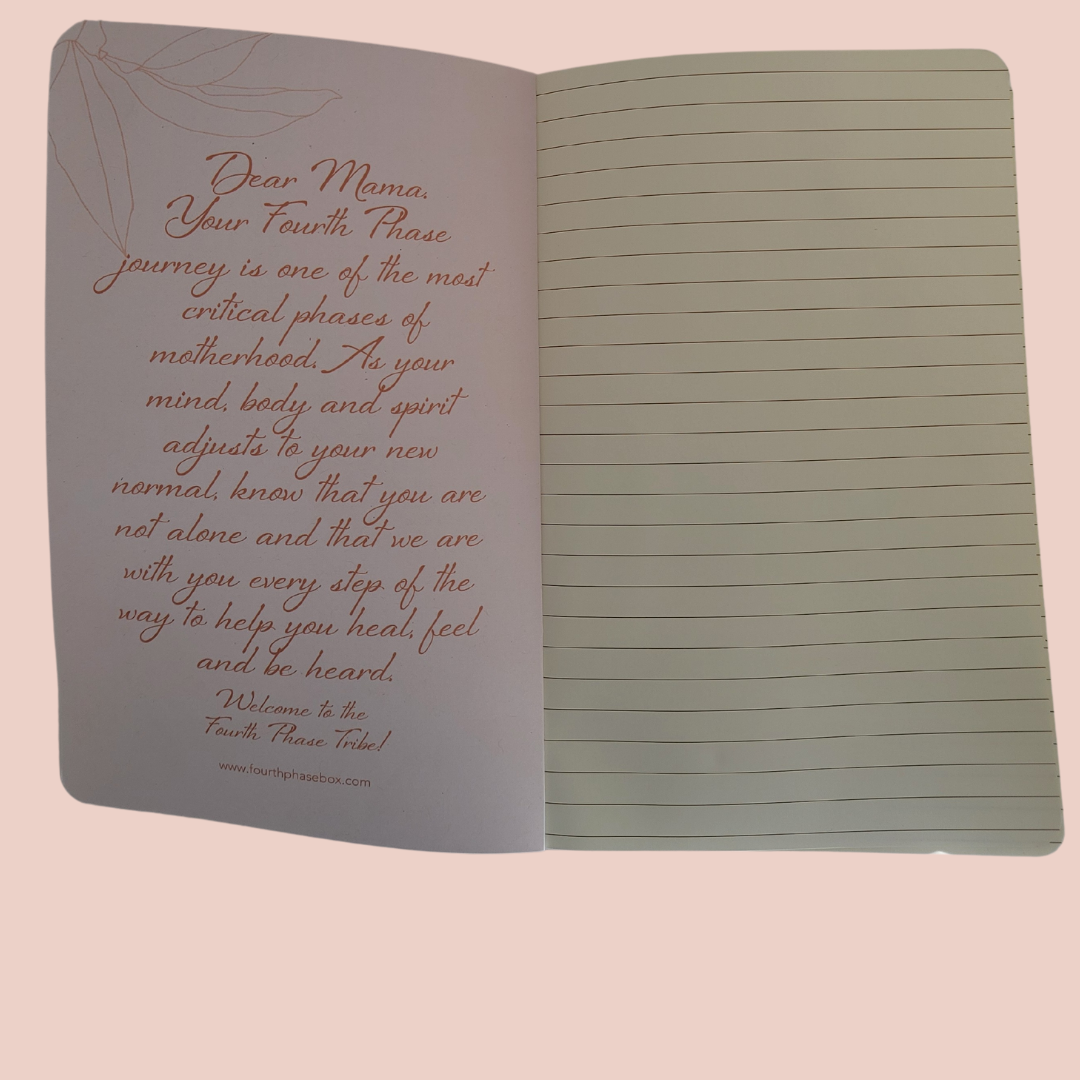 Dear Mama,
Your Fourth Phase
journey is one of the most
critical phases of
motherhood. As your
mind, body and spirit
adjusts to your new
normal, know that you are
not alone and that we are
with you every step of the
way to help you heal, feel
and be heard.
Welcome to the
Fourth Phase Tribe!
www.fourthphasebox.com